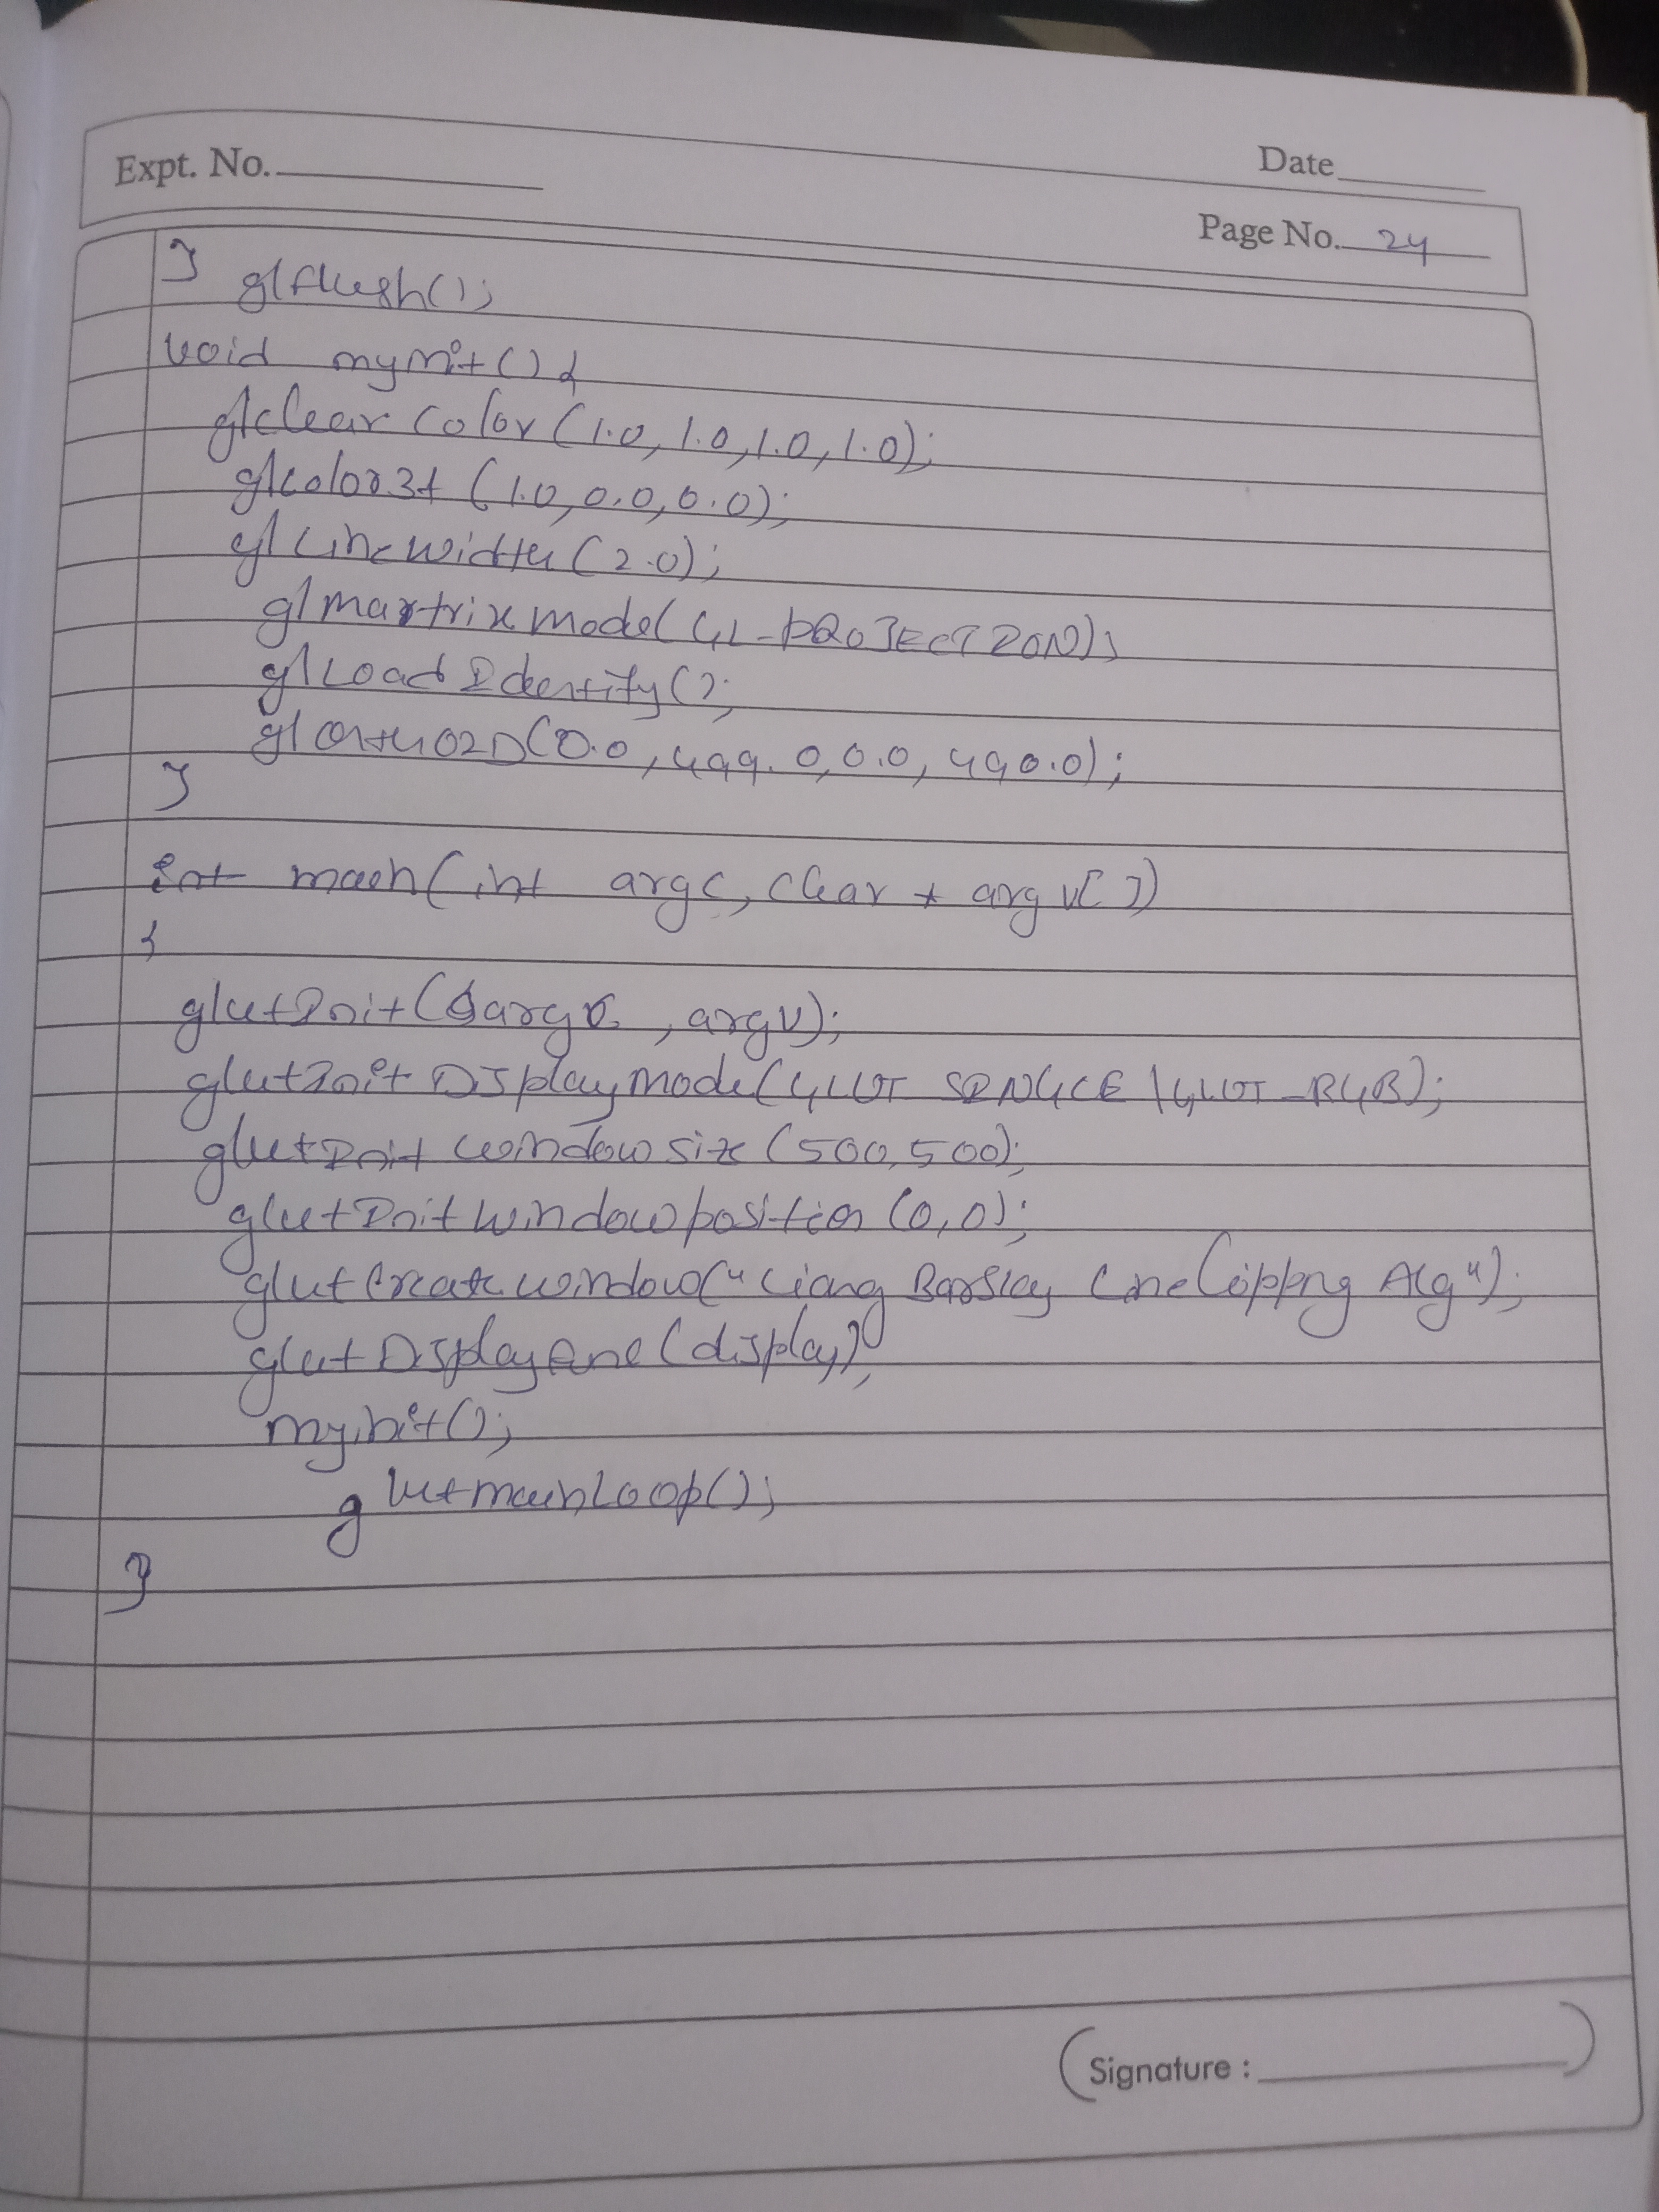 Expt. No.
Date
Page No. 24
}
glflush();
void myinit() {
glclear color (1.0, 1.0, 1.0, 1.0);
glcolor3f (1.0, 0.0, 0.0);
gl Linewidth (2.0);
gl martrix mode (GL_PROJECTION);
gl Load Identity ();
gl Ortho2D (0.0, 499.0, 0.0, 490.0);
}
int main (int argc, char * argv[])
{
glutInit (&argc, argv);
glutInit Display mode (GLUT SINGLE | GLUT_RGB);
glutInit window size (500, 500);
glutInit window position (0,0);
glut Create window ("Liang Barsley Line Clipping Alg");
glut Display func (display);
myinit();
glutmainLoop();
}
Signature :